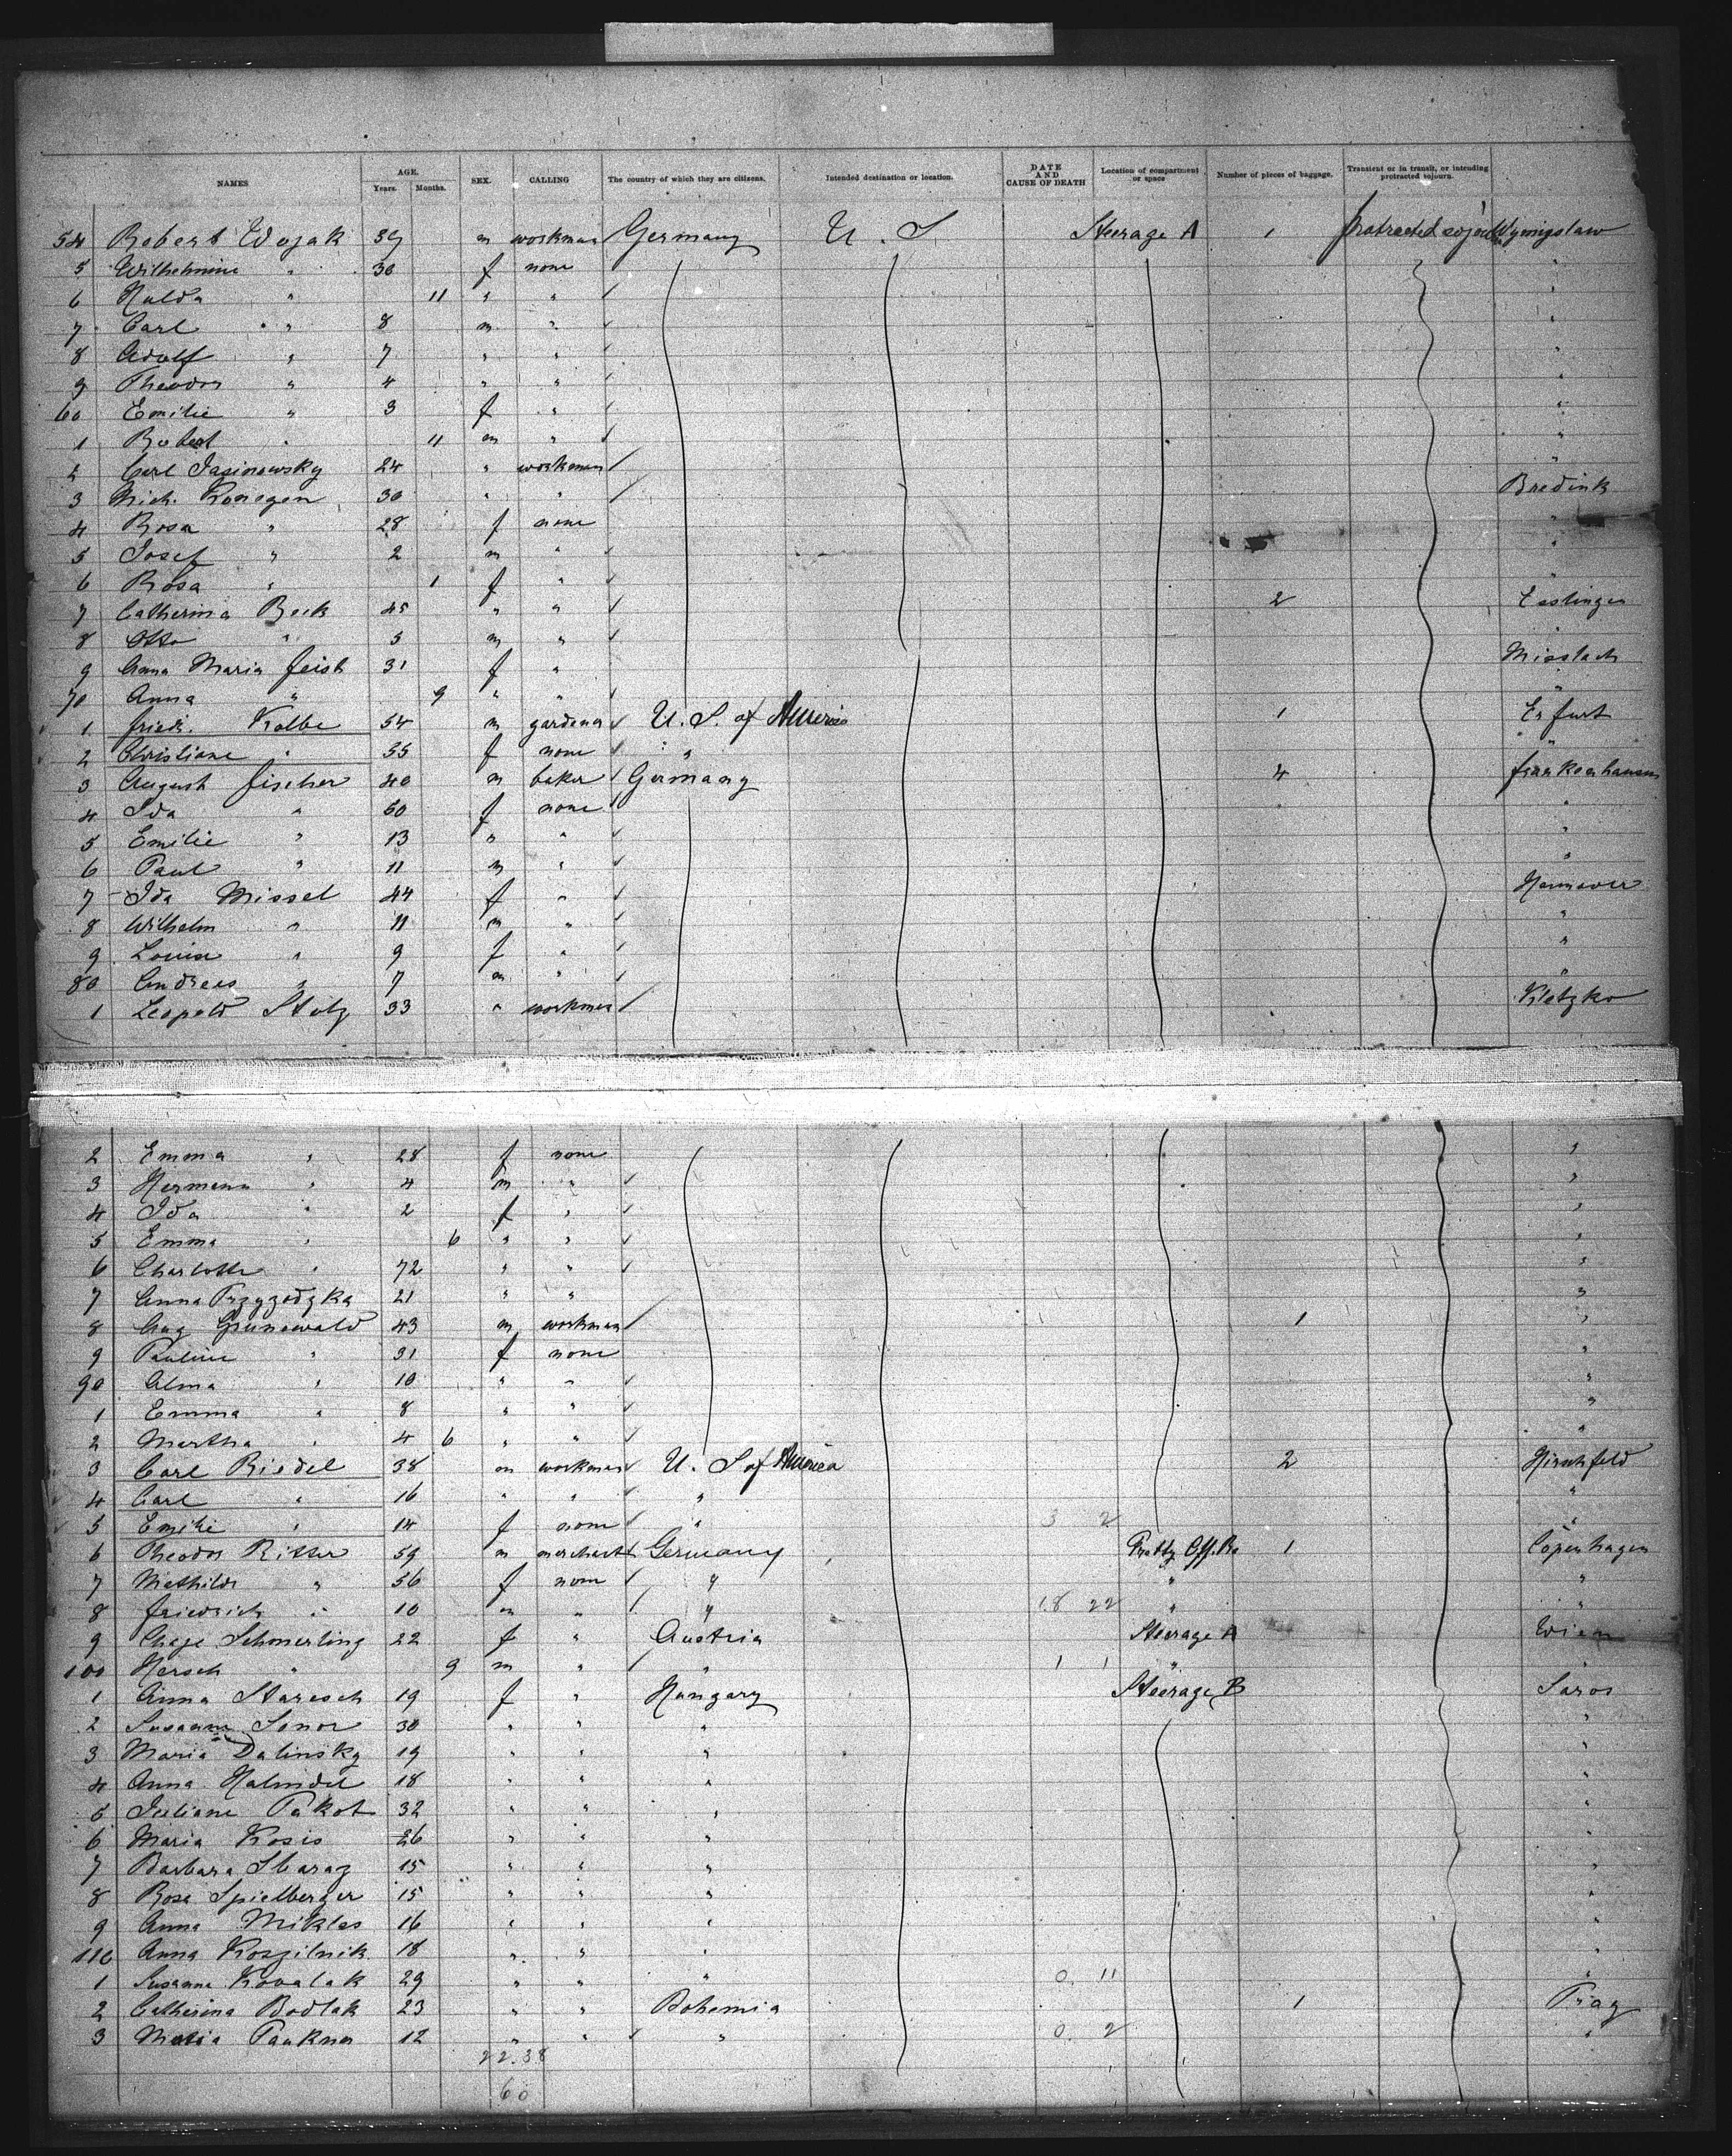 NAMES AGE. Years. Months. SEX. CALLING The country of which they are citizens. Intended destination or location. DATE AND CAUSE OF DEATH Location of compartment or space Number of pieces of baggage. Transient or in transit, or intending protracted sojourn.
54 Robert Wojak 39 m workman Germany U. S Steerage A 1 protracted sojourn
5 Wilhelmine " 30 f none "
6 Hulda " 11 " " "
7 Carl " 8 m " "
8 Adolf " 7 " " "
9 Theodor " 4 " " "
60 Emilie " 3 f " "
1 Robert " 11 m " "
2 Carl Jasinowsky 24 " workman "
3 Mich. Konegen 30 " " Bredink
4 Rosa " 28 f none "
5 Josef " 2 m " "
6 Rosa " 1 f " "
7 Catherina Beck 45 " " 2 Esslingen
8 Otto " 5 m " "
9 Anna Maria Feist 31 f " Misslach
70 Anna " 9 " " "
1 Friedr. Kolbe 54 m gardener U. S. of America 1 Erfurt
2 Christiane " 55 f none " "
3 August Fischer 40 m baker Germany 4 Frankenhausen
4 Ida " 60 f none "
5 Emilie " 13 " " "
6 Paul " 11 m " "
7 Ida Missel 44 f " Hannover
8 Wilhelm " 11 m " "
9 Louise " 9 f " "
80 Andreas " 7 m " "
1 Leopold Stolz 33 " workman Kletzko
2 Emma " 28 f none "
3 Hermann " 4 m " "
4 Ida " 2 f " "
5 Emma " 6 " " "
6 Charlotte " 72 " " "
7 Anna Przygodzka 21 " " "
8 Aug Grunewald 43 m workman 1 "
9 Pauline " 31 f none "
90 Alma " 10 " " "
1 Emma " 8 " " "
2 Martha " 4 6 " " "
3 Carl Riedel 38 m workman U. S of America 2 Hirschfeld
4 Carl " 16 " " " "
5 Emilie " 14 f none " 3 2 "
6 Theodor Ritter 59 m merchant Germany 1 Copenhagen
7 Mathilde " 56 f none " " "
8 Friedrich " 10 m " " 18 22 " "
9 Chaje Schmerling 22 f " Austria Steerage A Wien
100 Hersch " 9 m " " 1 1 " "
1 Anna Staresch 19 f " Hungary Steerage B Saros
2 Susanne Senor 30 " " " "
3 Maria Dalinsky 19 " " " "
4 Anna Halmdel 18 " " " "
5 Juliane Pakot 32 " " " "
6 Maria Kosis 26 " " " "
7 Barbara Sbaraz 15 " " " "
8 Rosa Spielberger 15 " " " "
9 Anna Miklos 16 " " " "
110 Anna Koszilnik 18 " " " "
1 Susanna Kovalak 29 " " " 0. 11 "
2 Catherina Bodlak 23 " " Bohemia 1 Prag
3 Maria Paukner 12 " " " 0. 2 "
22.38
60